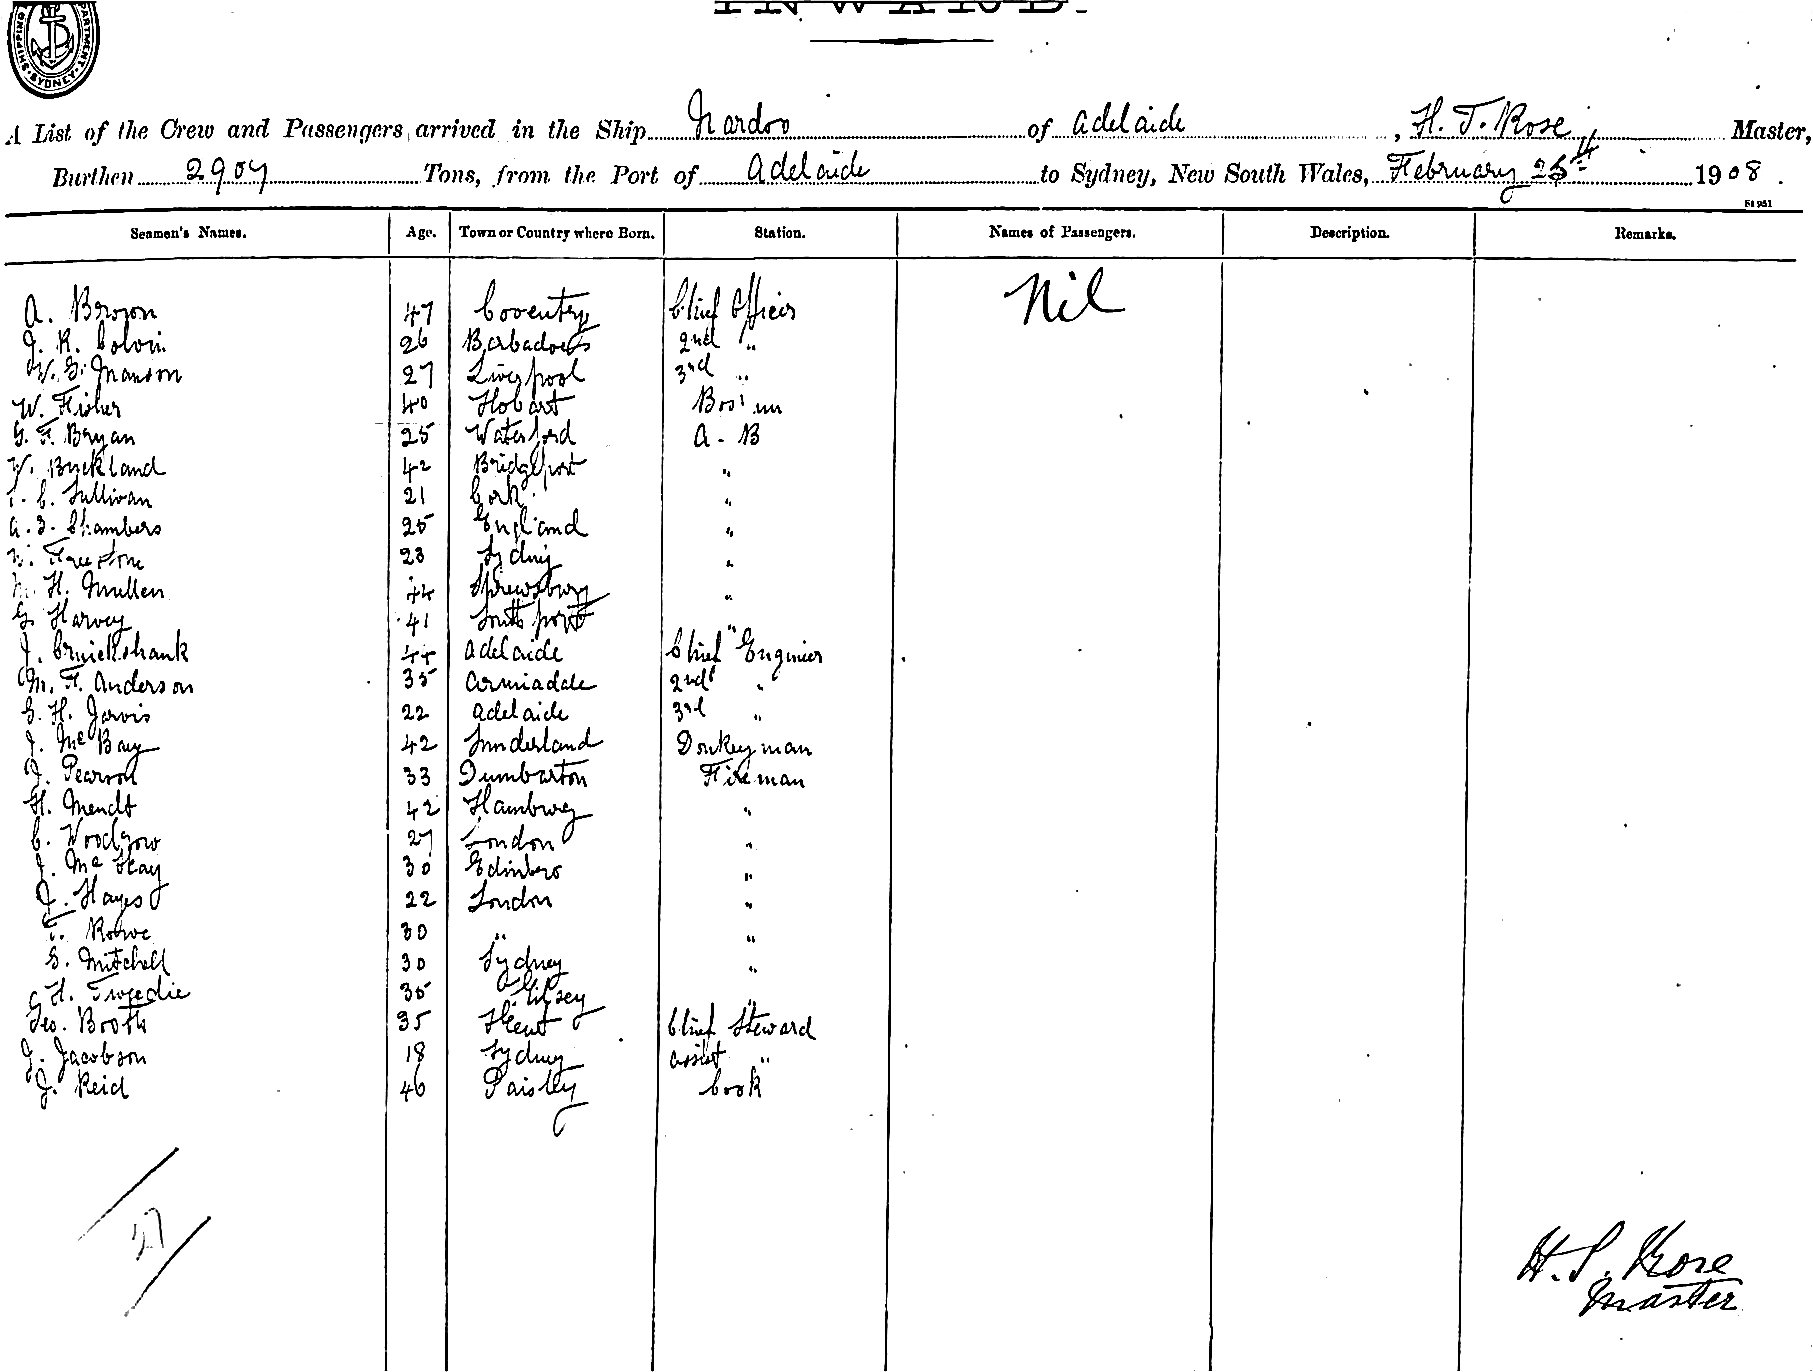 INWARD.
SHIPPING DEPARTMENT. SYDNEY.
A List of the Crew and Passengers arrived in the Ship Nardoo of Adelaide, H. T. Rose Master,
Burthen 2904 Tons, from the Port of Adelaide to Sydney, New South Wales, February 25th 1908.
Seamen's Names. Age. Town or Country where Born. Station. Names of Passengers. Description. Remarks.
A. Brown 47 Coventry Chief Officer Nil
J. R. Colvin 26 Barbadoes 2nd "
W. G. Manson 27 Liverpool 3rd "
W. Fisher 40 Hobart Bos'un
G. F. Bryan 25 Waterford A-B
W. Buckland 42 Bridgeport "
C. Sullivan 21 Cork "
A. J. Chambers 25 England "
Freestone 23 Sydney "
H. Mullen 44 Shrewsbury "
G. Harvey 41 Southport "
J. Cruickshank 44 Adelaide Chief Engineer
M. F. Anderson 35 Armadale 2nd "
G. H. Jarvis 22 Adelaide 3rd "
J. McBay 42 Sunderland Donkeyman
J. Pearson 33 Dumbarton Fireman
H. Mendt 42 Hamburg "
C. Woodgrow 27 London "
J. McKay 30 Edinbro "
J. Hayes 22 London "
T. Rowe 30 " "
G. Mitchell 30 Sydney "
G. H. Tweedie 35 "
Geo. Booth 35 Kent Chief Steward
J. Jacobson 18 Sydney Assist "
J. Reid 46 Paisley Cook
27
H. T. Rose
Master